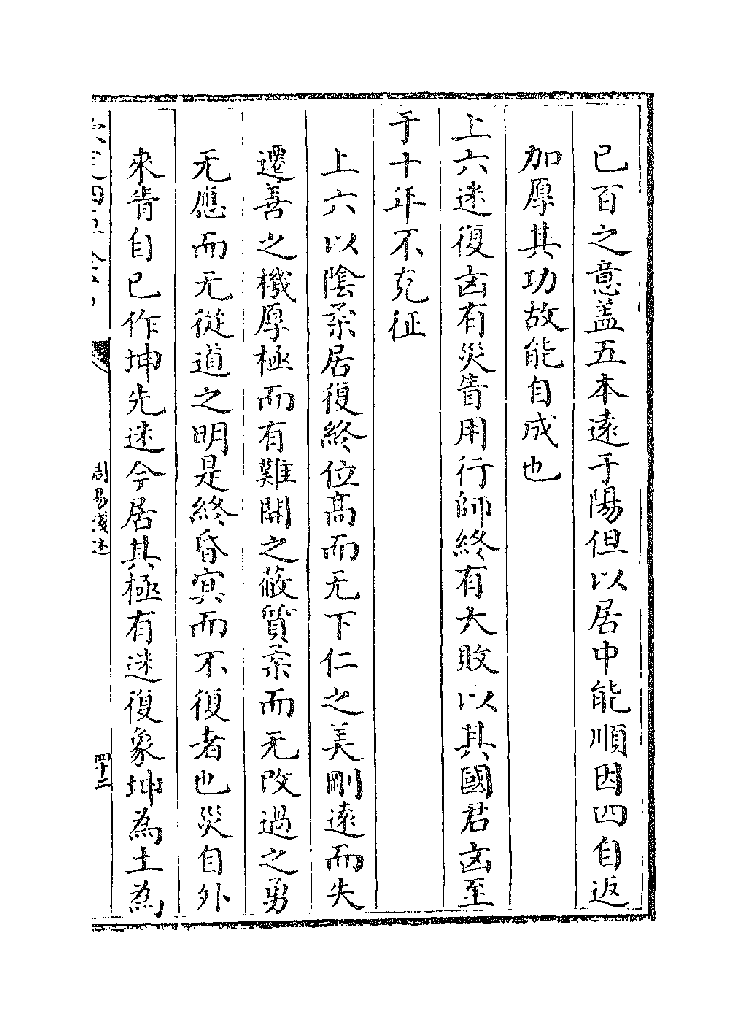 已百之意盖五本遠于陽但以居中能順因四自返
加厚其功故能自成也
上六迷復凶有災眚用行師終有大敗以其國君凶至
于十年不克征
上六以陰柔居復終位高而无下仁之美剛遠而失
遷善之機厚極而有難開之蔽質柔而无改過之勇
无應而无從道之明是終昏冥而不復者也災自外
來眚自已作坤先迷今居其極有迷復象坤為土為
周易淺述
四十二